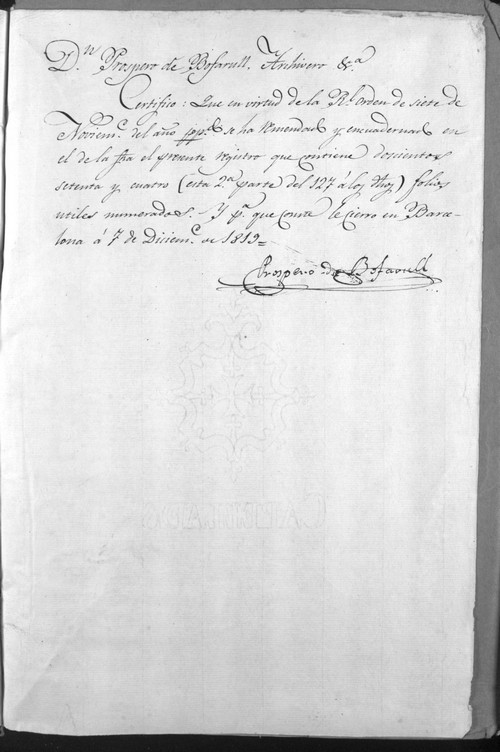 D.n Prospero de Bofarull, Archivero &c.a
Certifico: Que en virtud de la R.l orden de siete de
Noviem.e del año pp.o se ha remendado y encuadernado en
el de la fha el presente registro que contiene doscientos
setenta y cuatro (esta 2.a parte del 127 á los fhos) folios
utiles numerados. Y p.a que conste le cierro en Barce-
lona á 7 de Diciem.e de 1819=
Prospero de Bofarull